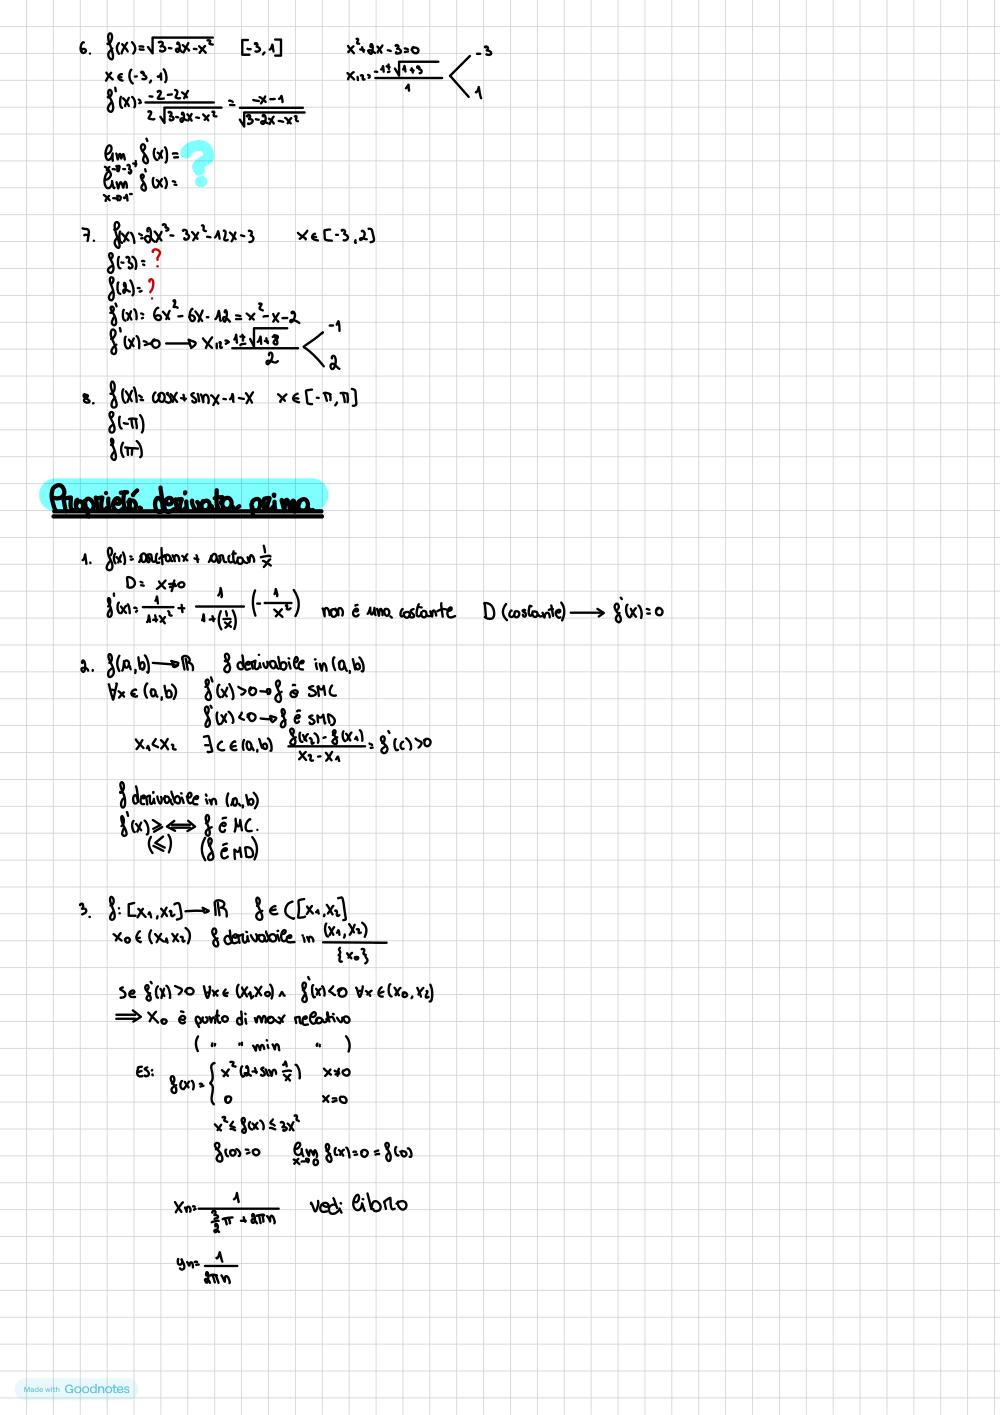 6. f(x)=√(3-2x-x²) [-3,1] x²+2x-3=0
x∈(-3,1) x₁,₂= (-1±√(1+3))/1 < -3
1
f'(x)= (-2-2x)/(2√(3-2x-x²)) = (-x-1)/√(3-2x-x²)
lim x→-3⁺ f'(x)= ?
lim x→1⁻ f'(x)=
7. f(x)=2x³-3x²-12x-3 x∈[-3,2]
f(-3)= ?
f(2)= ?
f'(x)= 6x²-6x-12=x²-x-2
f'(x)=0 → x₁,₂= (1±√(1+8))/2 < -1
2
8. f(x)= cosx+sinx-1-x x∈[-π,π]
f(-π)
f(π)
Proprietá derivata prima
1. f(x)= arctanx + arctan 1/x
D= x≠0
f'(x)= 1/(1+x²) + 1/(1+(1/x)) (-1/x²) non è una costante D (costante) → f'(x)=0
2. f(a,b)→ℝ f derivabile in (a,b)
∀x∈(a,b) f'(x)>0→f è SMC
f'(x)<0→f é SMD
x₁<x₂ ∃c∈(a,b) (f(x₂)-f(x₁))/(x₂-x₁) = f'(c)>0
f derivabile in (a,b)
f'(x)⩾ ⟺ f é MC.
(⩽) (f é MD)
3. f: [x₁,x₂]→ℝ f∈C[x₁,x₂]
x₀∈(x₁x₂) f derivabile in (x₁,x₂)/{x₀}
Se f'(x)>0 ∀x∈(x₁x₀) ∧ f'(x)<0 ∀x∈(x₀,x₂)
⟹ x₀ è punto di max relativo
( " " min " )
ES: f(x)= { x²(2+sin 1/x) x≠0
0 x=0
x²≤f(x)≤3x²
f(0)=0 lim x→0 f(x)=0=f(0)
xn= 1/(3/2π+2πn) vedi libro
yn= 1/2πn
Made with Goodnotes